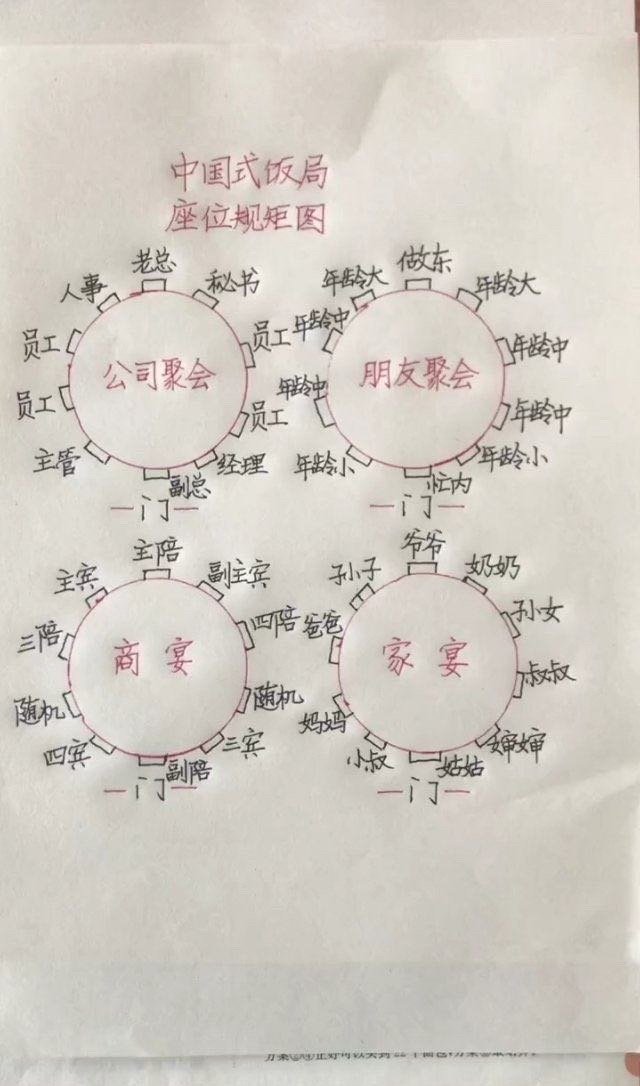 中国式饭局
座位规矩图
老总
人事
秘书
员工
员工
公司聚会
员工
员工
主管
经理
副总
门
做东
年龄大
年龄大
年龄中
年龄中
朋友聚会
年龄中
年龄中
年龄小
年龄小
忙内
门
主陪
主宾
副主宾
三陪
四陪
商宴
随机
随机
四宾
三宾
副陪
门
爷爷
孙子
奶奶
爸爸
孙女
家宴
叔叔
妈妈
小叔
婶婶
姑姑
门